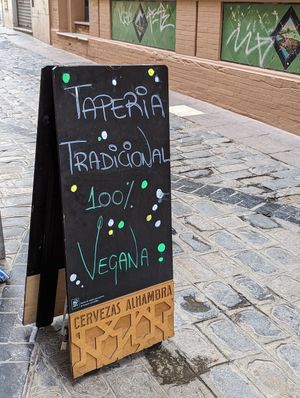 TAPERIA
TRADICIONAL
100%
VEGANA
CERVEZAS ALHAMBRA